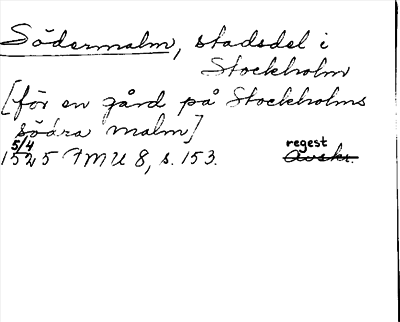 Södermalm, stadsdel i
Stockholm
[för en gård på Stockholms
södra malm]
5/4 regest
1525 PMU 8, s. 153. Avskr.